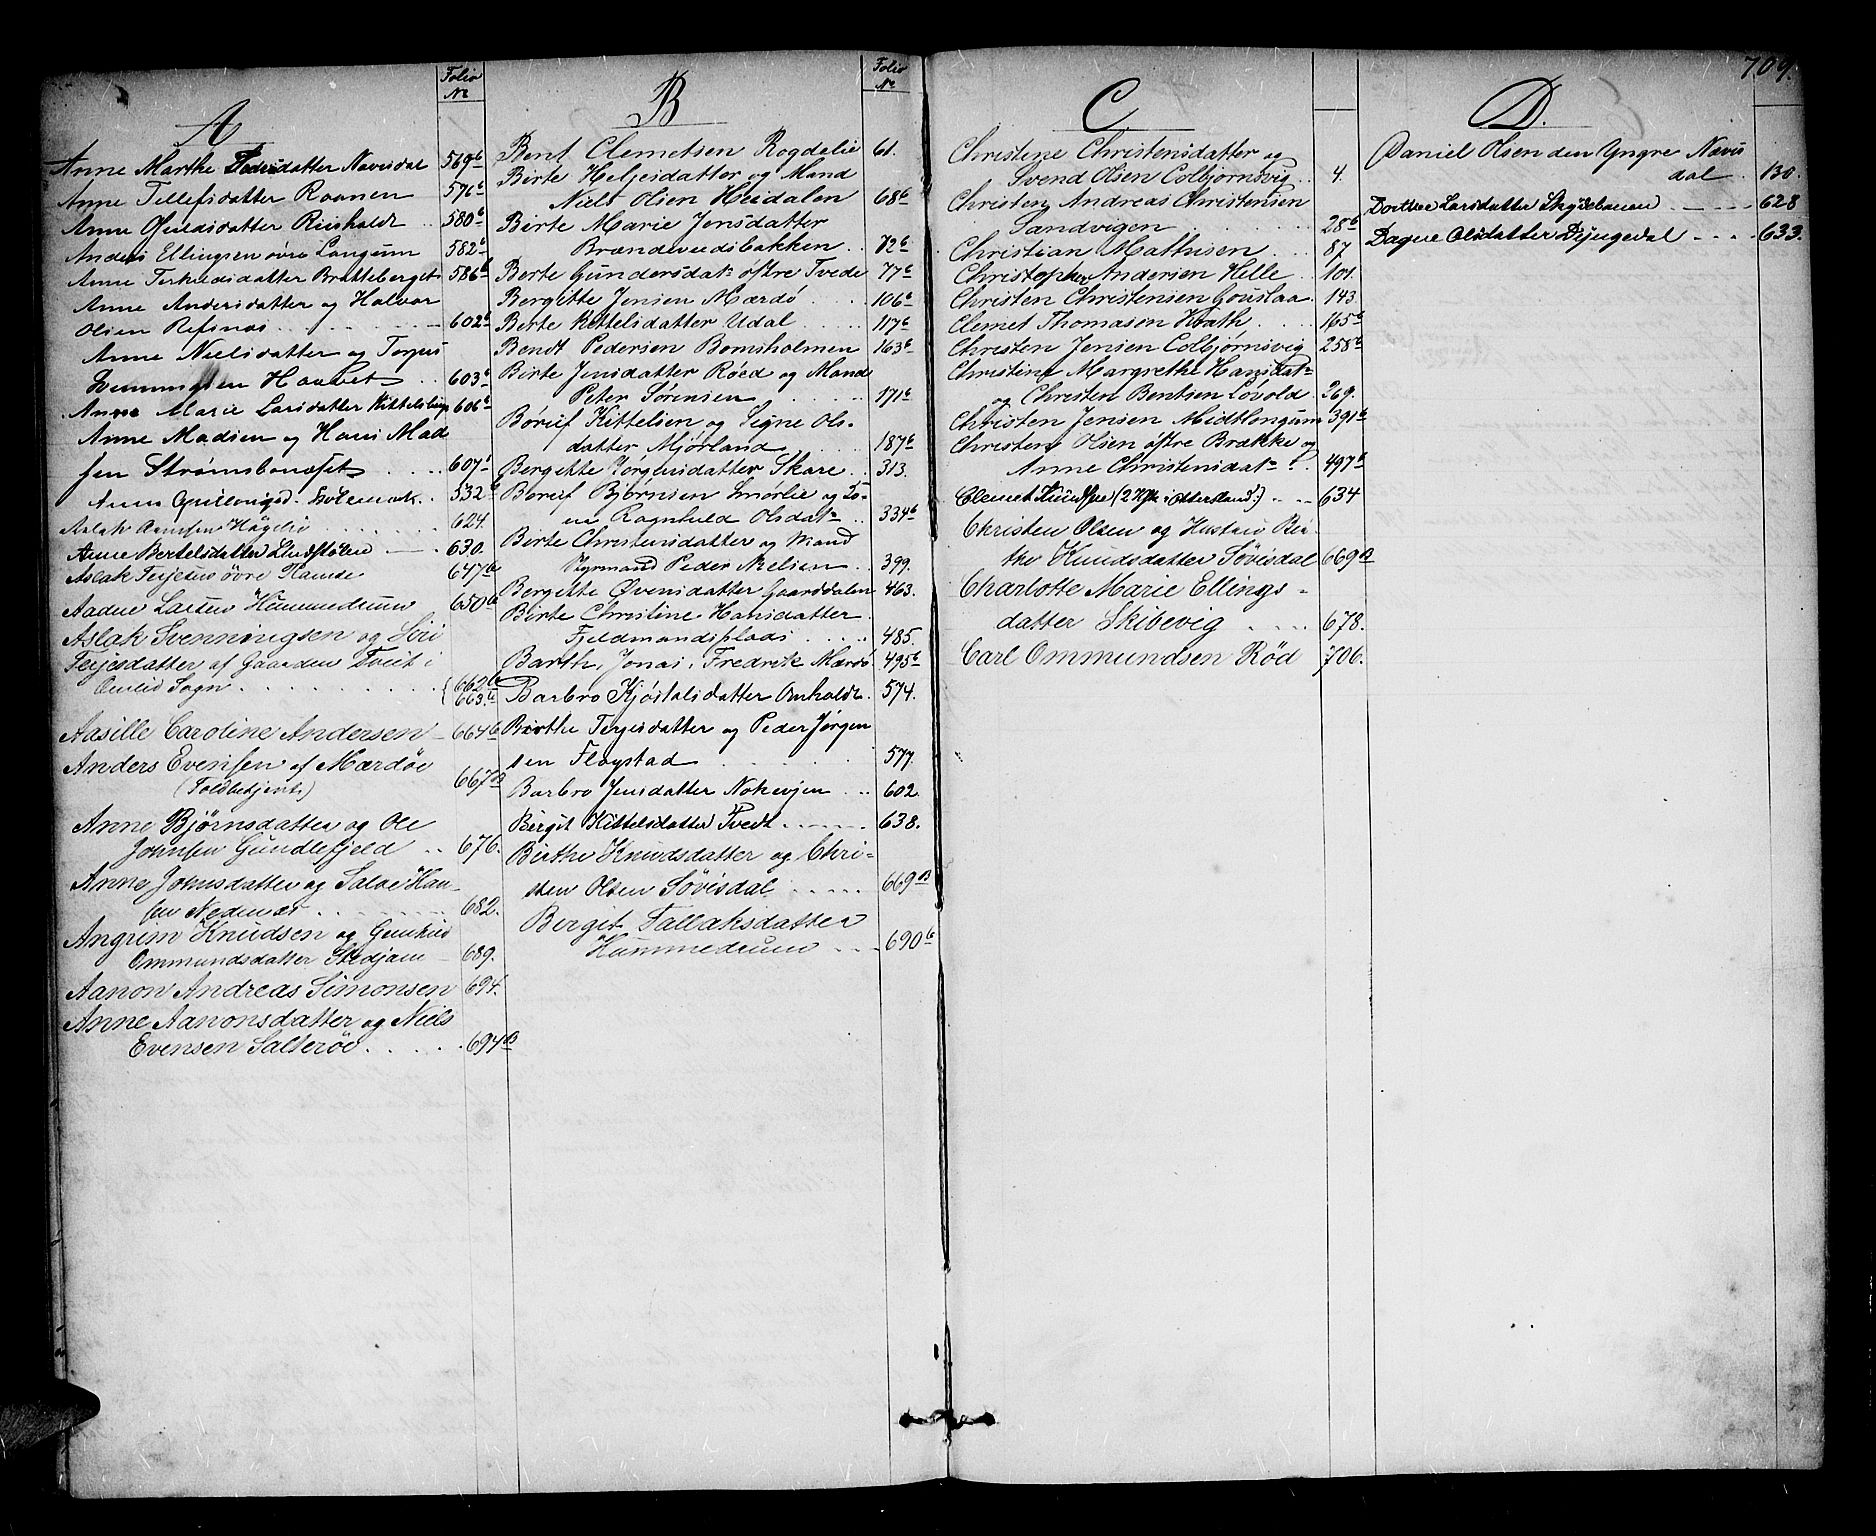 A
Folio
No
Anne Marthe Pedersdatter Navisdal 569b
Anne Tellefsdatter Raanen 576b
Anne Osuldsdatter Rinholdt .. 580b
Anders Ellingsen øvre Langum 582b
Anne Terkildsdatter Bratteberget 586b
Anne Andersdatter og Halvor
Olsen Refsnæs ........ 602b
Anne Nielsdatter og Torjus
Svenningsen Haabet .. 603b
Anne Marie Larsdatter Kittelsbugt 606b
Anne Madsen og Hans Mad
sen Strømsbonæset .... 607b
532b
Aslak Aamsen Høgelie ...... 624.
Anne Bertelsdatter Lindstølen .... 630.
Aslak Terjesen øvre Ramse 647b
Aadne Larsen Hummedrum 650b
Aslak Svenningsen og Siri
Terjesdatter af Gaarden Tveit i
Omlid Sogn .......... {662b
663b
Aasille Caroline Andersen 664b
Anders Evensen af Mærdøe
(Toldbetjent) 667B
Anne Bjørnsdatter og Ole
Johnsen Gundlefjeld .. 676.
Anne Johnsdatter og Salve Han-
sen Nednæs ........ 682.
Angrim Knudsen og Gunhild
Ommundsdatter Stedjam 689.
Aanon Andreas Simonsen 694.
Anne Aanonsdatter og Niels
Evensen Salterøe ..... 694B
B
Folio
No
Bent Clemetsen Rogdelie 61.
Birte Heljesdatter og Mand
Niels Olsen Heidalen 68b
Birte Marie Jensdatter
Brændeviedsbakken .. 72b
Berte Gundersdatr østre Tvede 77b
Bergitte Jensen Mærdø .... 106b
Berte Kittelsdatter Udal .... 117b
Bendt Pedersen Bomsholmen 163b
Birte Jensdatter Røed og Mand
Peter Sørensen ...... 171b
Børuf Kittelsen og Signe Ols-
datter Mjørland ..... 187b
Bergitte Jørgensdatter Skare .. 313.
Boruf Bjørnsen Smørlie og Ko-
ne Ragnhild Olsdatr .. 334b
Birte Christensdatter og Mand
Styrmand Peder Nielsen .. 399.
Bergitte Øvensdatter Gaarddalen 463.
Birte Christine Hansdatter
Fjeldmandsplads ..... 485.
Barth, Jonas, Fredrik Mærdø 495b
Barbro Kjøstolsdatter Omholdt. 574.
Birthe Terjesdatter og Peder Jørgen
sen Flagstad ........ 577.
Barbro Jensdatter Nokevjen ... 602.
Birgit Kittelsdatter Tvedt ....... 638.
Birthe Knudsdatter og Chri-
sten Olsen Søvisdal ...... 669B
Berget Tallaksdatter
Hummedrum .... 690b
C
Christine Christensdatter og
Svend Olsen Colbjørnsvig .. 4.
Christen Andreas Christensen
Sandvigen ......... 28b
Christian Mathisen .... 87
Christopher Andersen Helle .. 101.
Christen Christensen Gouslaa 143.
Clemet Thomasen Krath .... 165b
Christen Jensen Colbjørnsvig 258b
Christine Margrethe Hansdat-
og Christen Bentsen Løvold . 269.
Christen Jensen Midtlongum 391b
Christen Olsen østre Brække og
Anne Christensdatr .. 497b
Clemet Knudsen 634
Christen Olsen og Hustru Bir-
the Knudsdatter Søvisdal 669B
Charlotte Marie Ellings-
datter Skibevig ..... 678.
Carl Ommundsen Rød 706.
709.
D.
Daniel Olsen den Yngre Nævis
dal . 130.
Dorthe Larsdatter Skydebanen ... 628
Dagne Olsdatter Djupedal .... 633.